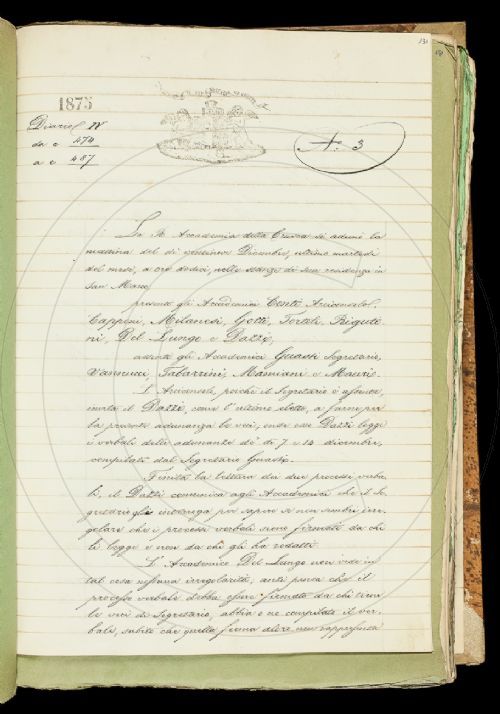 131
1875
Diario IV
da c 474
a c 487
A. 3
La R. Accademia della Crusca si adunò la
mattina del dì ventuno Dicembre, ultimo martedì
del mese, a ore dodici, nelle stanze di sua residenza in
San Marco,
presenti gli Accademici Conti Arciconsolo,
Capponi, Milanesi, Gotti, Tortoli, Riguti-
ni, Del Lungo e Dazzi,
assenti gli Accademici Guasti Segretario,
Vannucci, Tabarrini, Mamiani e Mauri.
L'Arciconsolo, poichè il Segretario è assente,
invita il Dazzi, come l'ultimo eletto, a farne per
la presente adunanza le veci, onde esso Dazzi legge
i verbali delle adunanze de' dì 7 e 14 dicembre,
compilati dal Segretario Guasti.
Finita la lettura dei due processi verba-
li, il Dazzi comunica agli Accademici che il Se-
gretario gli per sapere se non sembri irre-
golare che i processi verbali sieno firmati da chi
li legge e non da chi gli ha redatti.
L'Accademico Del Lungo non vede in
tal cosa nessuna irregolarità, anzi pensa che il
processo verbale debba esser firmato da chi tiene
le veci di Segretario, abbia o no compilato il ver-
bale, subito che quella firma altro non rappresenta